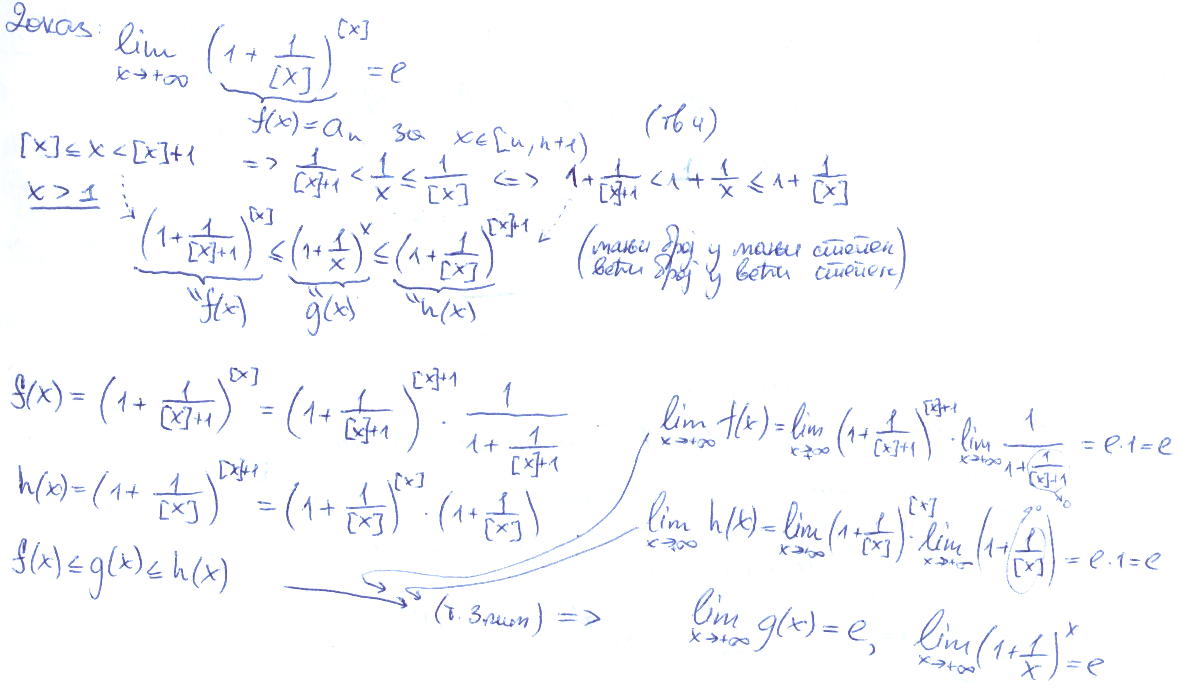 Доказ: lim x→+∞ (1 + 1/[x])^[x] = e
f(x) = aₙ за x∈[n, n+1) (тв 4)
[x] ≤ x < [x]+1 => 1/([x]+1) < 1/x ≤ 1/[x] <=> 1 + 1/([x]+1) < 1 + 1/x ≤ 1 + 1/[x]
x > 1
(1 + 1/([x]+1))^[x] ≤ (1 + 1/x)^x ≤ (1 + 1/[x])^([x]+1) (мањи број у мањи степен
већи број у већи степен)
"f(x) "g(x) "h(x)
f(x) = (1 + 1/([x]+1))^[x] = (1 + 1/([x]+1))^([x]+1) · 1/(1 + 1/([x]+1))
lim x→+∞ f(x) = lim x→+∞ (1 + 1/([x]+1))^([x]+1) · lim x→+∞ 1/(1 + 1/([x]+1)) = e·1 = e
→0
h(x) = (1 + 1/[x])^([x]+1) = (1 + 1/[x])^[x] · (1 + 1/[x])
lim x→+∞ h(x) = lim x→+∞ (1 + 1/[x])^[x] · lim x→+∞ (1 + 1/[x]) = e·1 = e
f(x) ≤ g(x) ≤ h(x)
=> lim x→+∞ g(x) = e, lim x→+∞ (1 + 1/x)^x = e